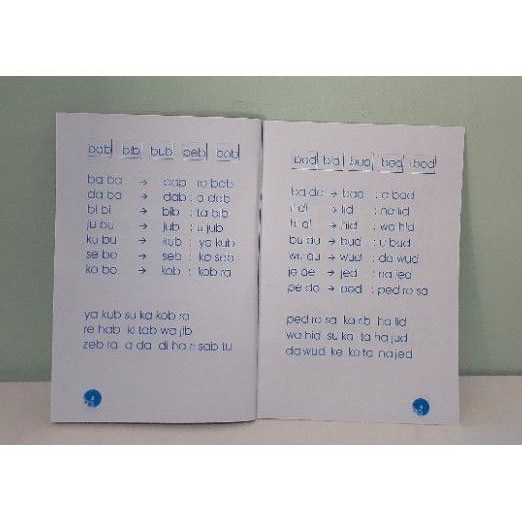 bab bib bub beb bob
ba ba → bab : a bab
da ba → dab : a dab
bi bi → bib : ta bib
ju bu → jub : a jub
ku bu → kub : ya kub
se bo → seb :
ko bo → kob : kob ra
ya kub su ka kob ra
re hab ki tab wa jib
zeb ra a da di ha ri sab tu
bad bid bud bed bod
ba da → bad : a bad
li di → lid : ha lid
hi di → hid : wa hid
bu du → bud : u bud
wu du → wud : da wud
je de → jed : na jed
pe do → ped : ped ro sa
ped ro sa ka rib ha lid
wa hid su ka ta ha jud
da wud ke ko ta na jed